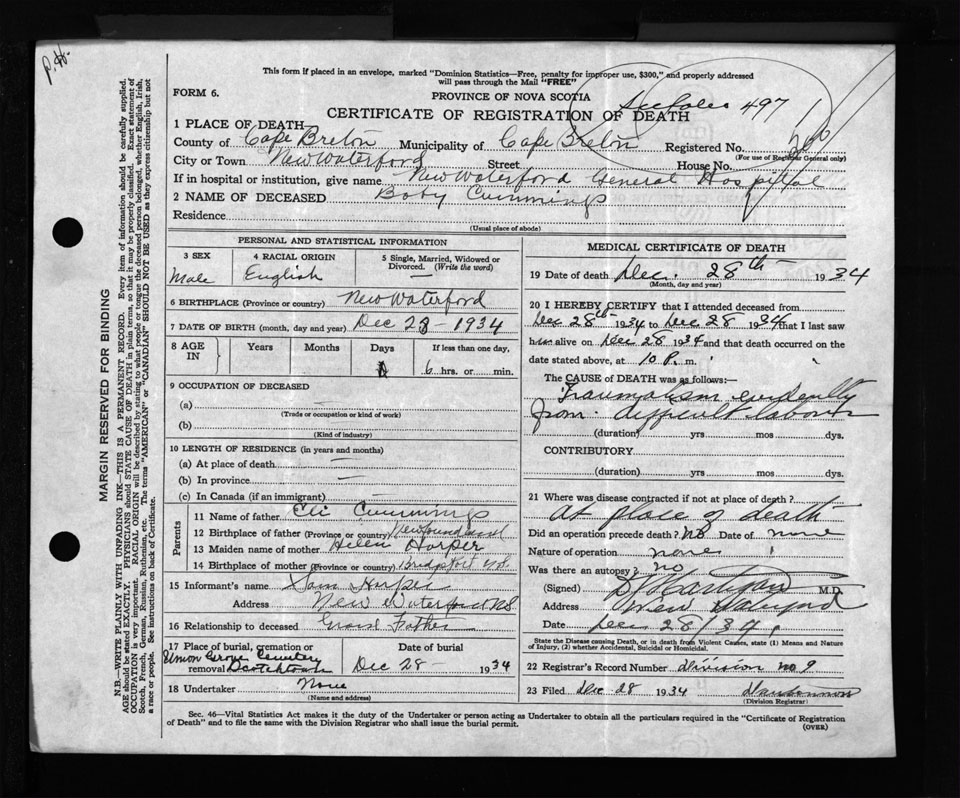 P.H.
This form if placed in an envelope, marked "Dominion Statistics—Free, penalty for improper use, $300," and properly addressed
will pass through the Mail "FREE"
FORM 6.
PROVINCE OF NOVA SCOTIA
497
CERTIFICATE OF REGISTRATION OF DEATH
1 PLACE OF DEATH
County of Cape Breton Municipality of Cape Breton Registered No.
(For use of Registrar General only)
City or Town New Waterford Street House No.
If in hospital or institution, give name New Waterford General Hospital
2 NAME OF DECEASED Baby Cummings
Residence
(Usual place of abode)
PERSONAL AND STATISTICAL INFORMATION
3 SEX 4 RACIAL ORIGIN 5 Single, Married, Widowed or Divorced. (Write the word)
Male English —
6 BIRTHPLACE (Province or country) New Waterford
7 DATE OF BIRTH (month, day and year) Dec 28 - 1934
8 AGE IN Years Months Days If less than one day,
6 hrs. or min.
9 OCCUPATION OF DECEASED
(a) —
(Trade or occupation or kind of work)
(b)
(Kind of industry)
10 LENGTH OF RESIDENCE (in years and months)
(a) At place of death —
(b) In province —
(c) In Canada (if an immigrant) —
Parents
11 Name of father Eli Cummings
12 Birthplace of father (Province or country) Newfoundland
13 Maiden name of mother Helen Harper
14 Birthplace of mother (Province or country) Bridgport
15 Informant's name Sam Harper
Address New Waterford NS
16 Relationship to deceased Grand Father
17 Place of burial, cremation or removal Date of burial
Union Grove Cemetery
Scotchtown Dec 28 - 1934
18 Undertaker None
(Name and address)
MEDICAL CERTIFICATE OF DEATH
19 Date of death Dec. 28th 1934
(Month, day and year)
20 I HEREBY CERTIFY that I attended deceased from
Dec 28th 1934 to Dec 28 1934 that I last saw
him alive on Dec 28 1934 and that death occurred on the
date stated above, at 10 P. m.
The CAUSE of DEATH was as follows:—
Traumatism evidently
from difficult labour
(duration) yrs mos dys.
CONTRIBUTORY
(duration) yrs mos dys.
21 Where was disease contracted if not at place of death?
At place of death
Did an operation precede death? No Date of none
Nature of operation none
Was there an autopsy? no
(Signed) M.D.
Address New Waterford
Date Dec 28/34.
State the Disease causing Death, or in death from Violent Causes, state (1) Means and Nature
of Injury, (2) whether Accidental, Suicidal or Homicidal.
22 Registrar's Record Number division no 9
23 Filed Dec 28 1934
(Division Registrar)
Sec. 46—Vital Statistics Act makes it the duty of the Undertaker or person acting as Undertaker to obtain all the particulars required in the "Certificate of Registration
of Death" and to file the same with the Division Registrar who shall issue the burial permit.
(OVER)
MARGIN RESERVED FOR BINDING
N.B.—WRITE PLAINLY WITH UNFADING INK—THIS IS A PERMANENT RECORD. Every item of information should be carefully supplied.
AGE should be stated EXACTLY. PHYSICIANS should STATE CAUSE OF DEATH in plain terms, so that it may be properly classified. Exact statement of
OCCUPATION is very important. RACIAL ORIGIN will be described by stating to what people or tongue the deceased person belonged, whether English, Irish,
Scotch, French, German, Russian, Ruthenian, etc. The terms "AMERICAN" or "CANADIAN" SHOULD NOT BE USED as they express citizenship but not
a race or people. See instructions on back of Certificate.